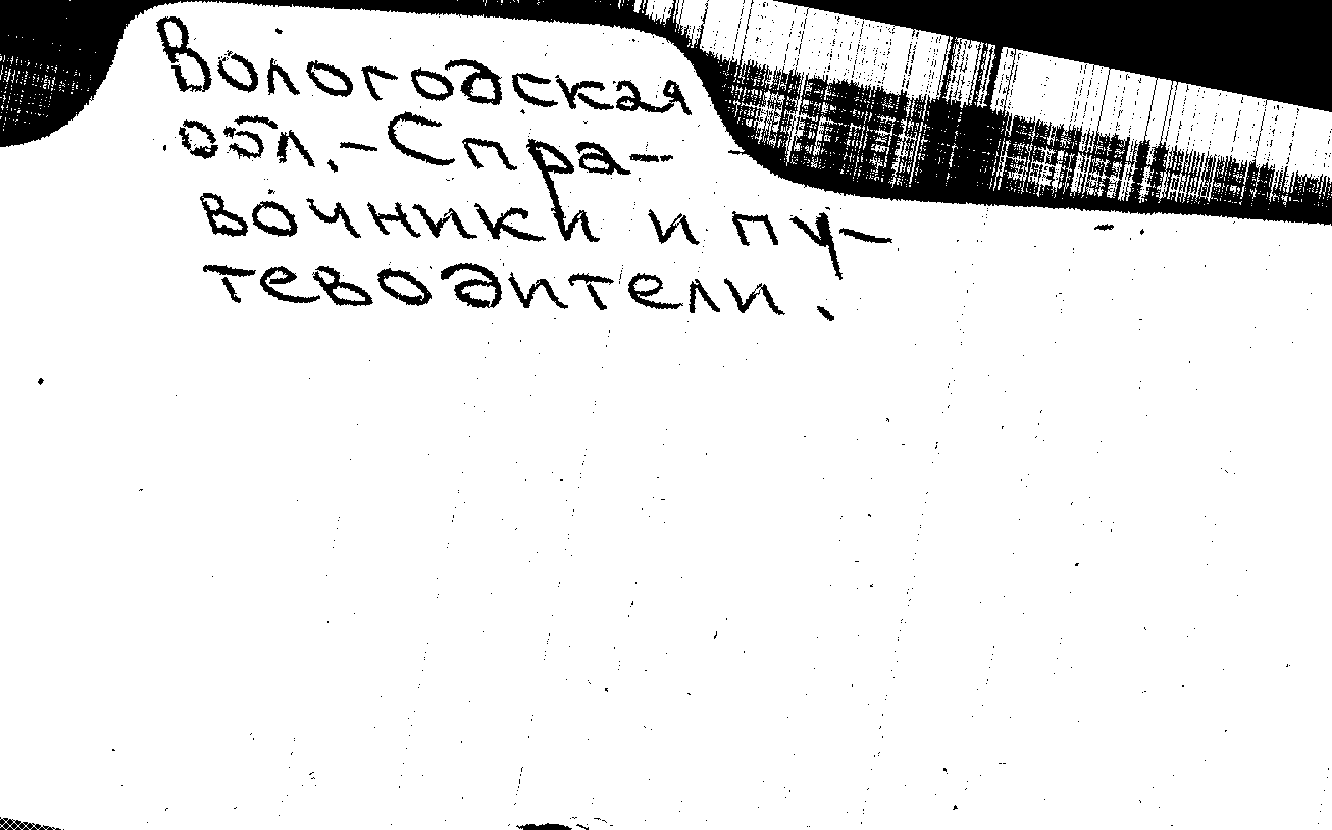 Вологодская
обл.-Спра-
вочники и пу-
теводители.